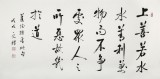 上善若水
水善利萬
物而不爭
處眾人之
所惡故幾
於道